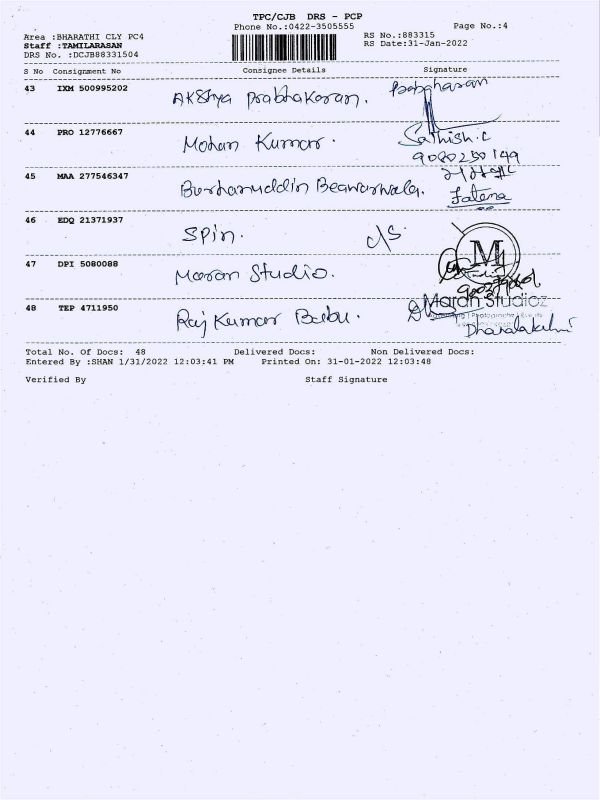 TPC/CJB DRS - PCP
Phone No.:0422-3505555 Page No.:4
Area :BHARATHI CLY PC4 RS No.:883315
Staff :TAMILARASAN RS Date:31-Jan-2022
DRS No. :DCJB88331504
S No Consignment No Consignee Details Signature
43 IXM 500995202 Akshya Prabhakaran.
44 PRO 12776667 Mohan Kumar. Sathish.C
9080250149
45 MAA 277546347 Burhanuddin Beawarwala. Fatema
46 EDQ 21371937 Spin. C/S
M
47 DPI 5080088 Maran Studio.
Maran Studioz
48 TEP 4711950 Raj Kumar Babu.
Total No. Of Docs: 48 Delivered Docs: Non Delivered Docs:
Entered By :SHAN 1/31/2022 12:03:41 PM Printed On: 31-01-2022 12:03:48
Verified By Staff Signature